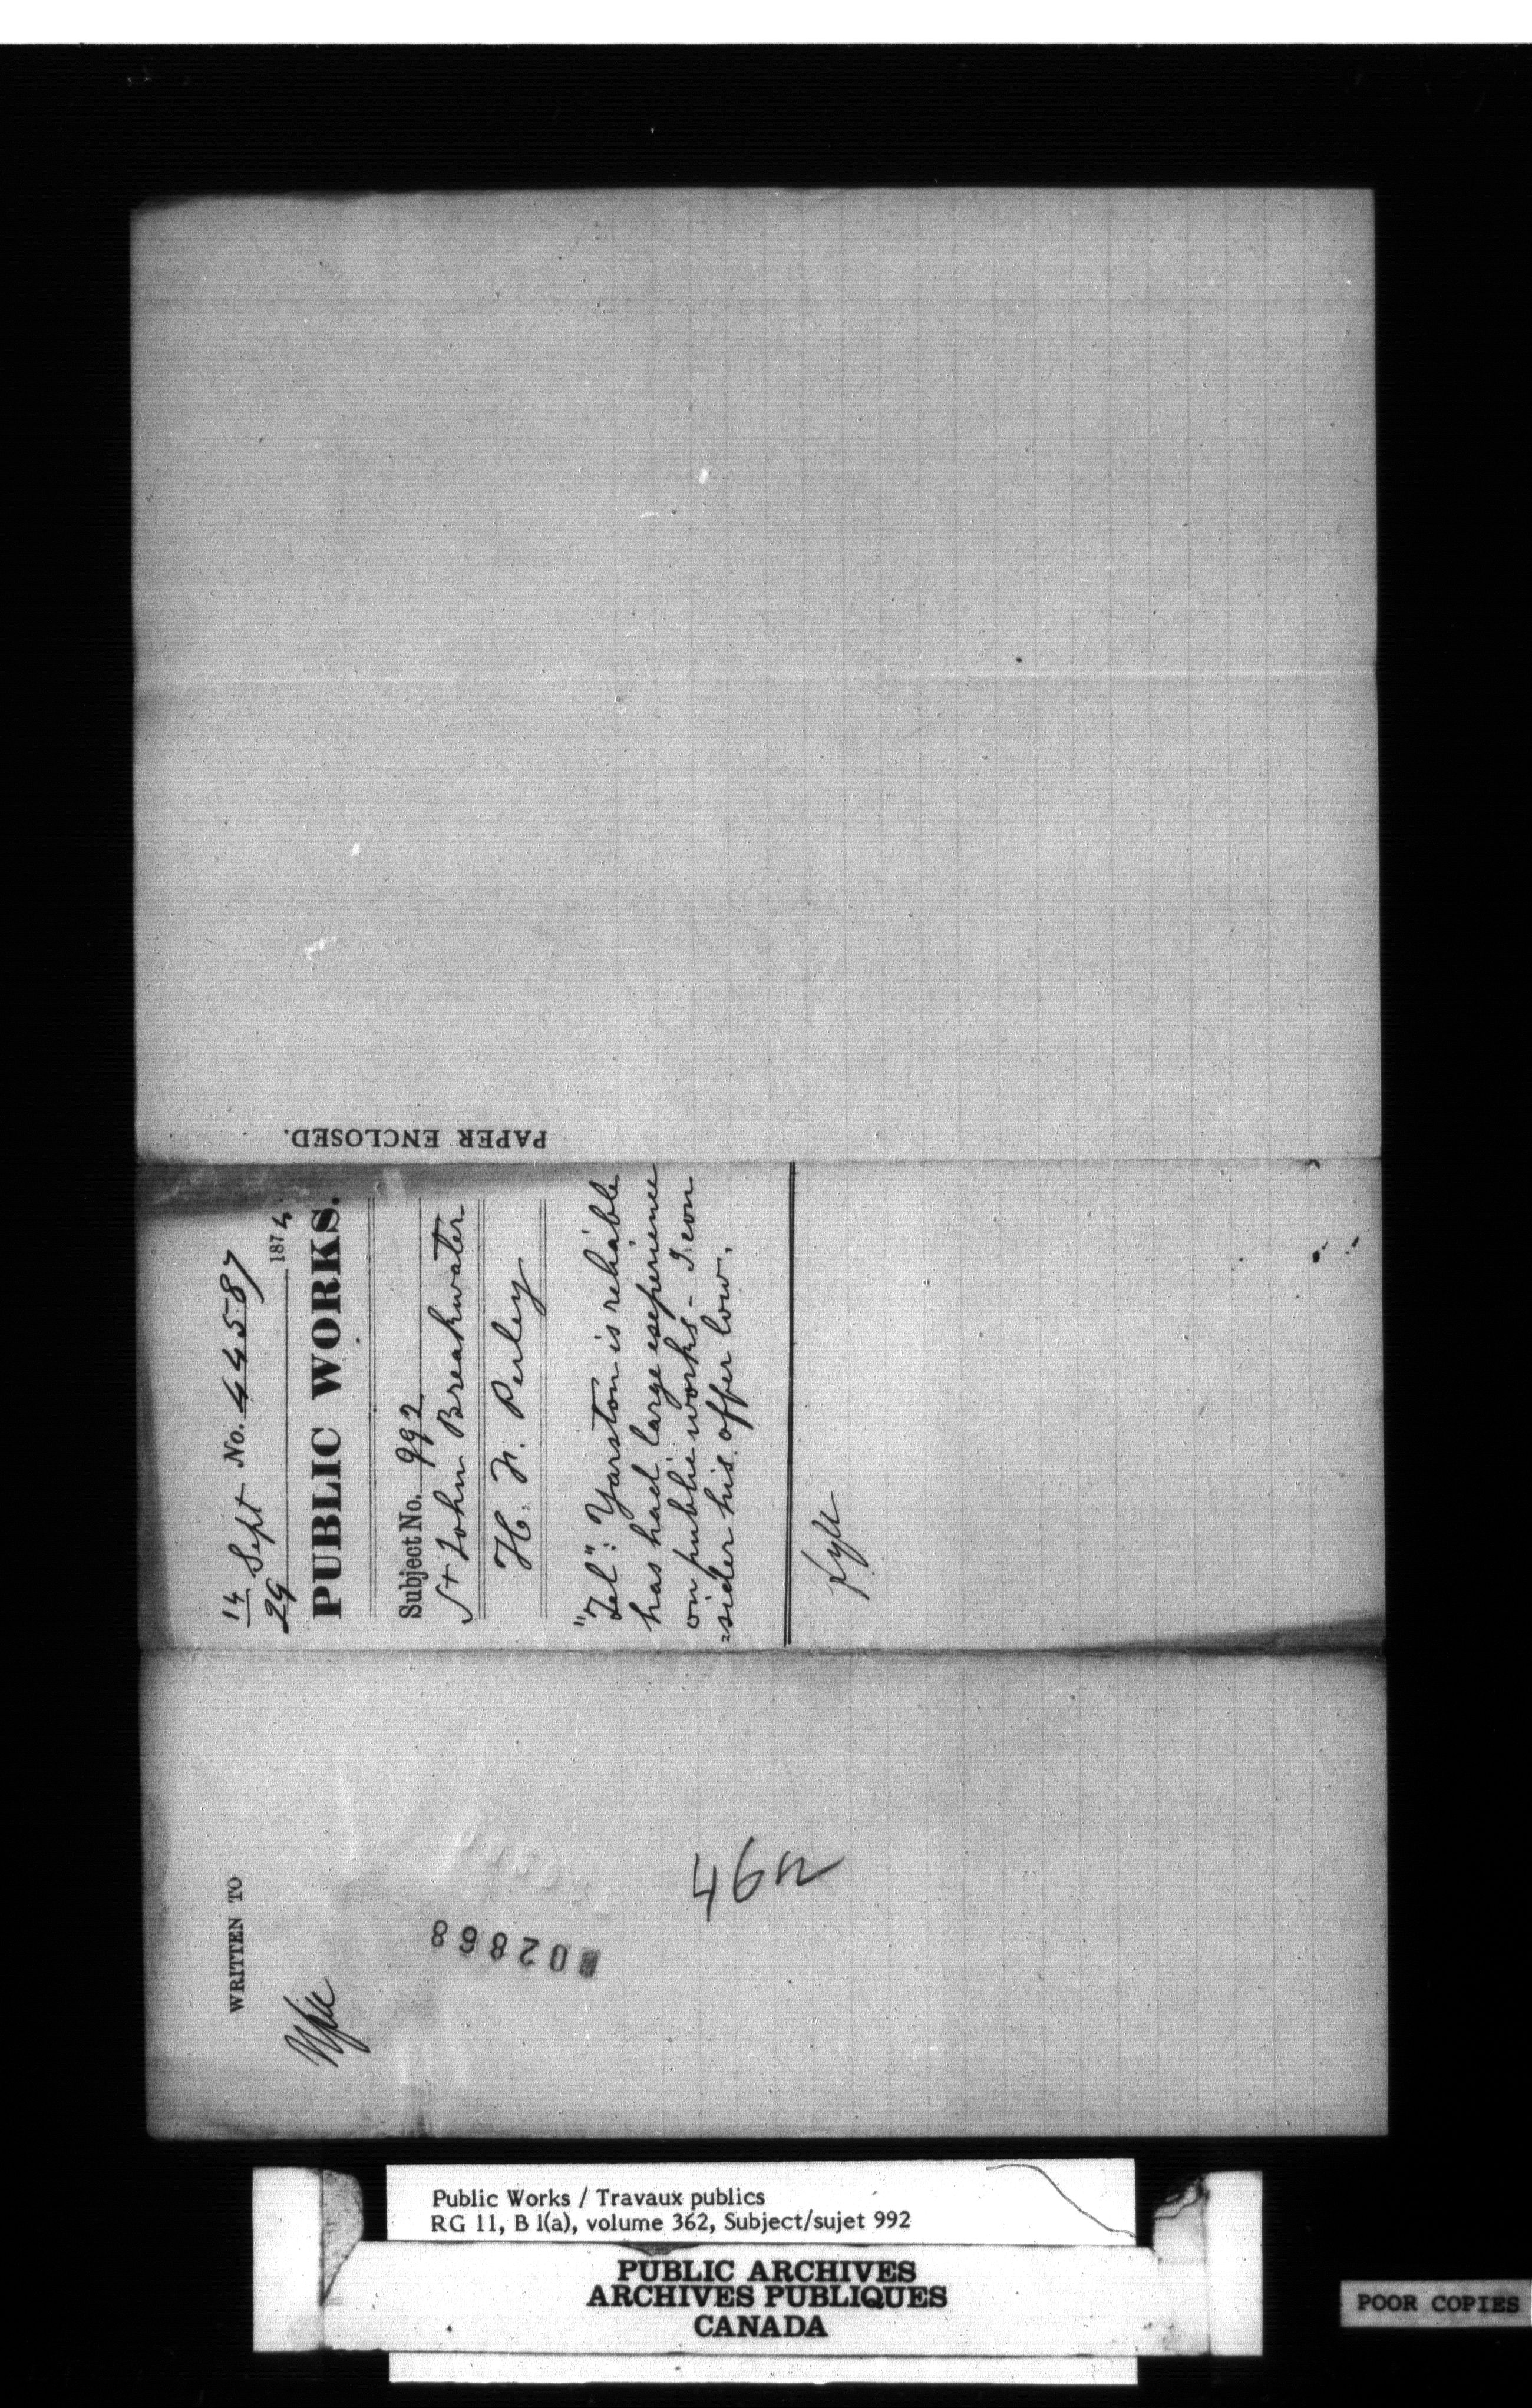 14 Sept No. 44587
29 1874
PUBLIC WORKS.
Subject No. 992
St John Breakwater
H. F. Perley
"Tel": Yarston is reliable
has had large experience
on public works - I con
=sider his offer low.
PAPER ENCLOSED.
WRITTEN TO
02868
Public Works / Travaux publics
RG 11, B 1(a), volume 362, Subject/sujet 992
PUBLIC ARCHIVES
ARCHIVES PUBLIQUES
CANADA
POOR COPIES